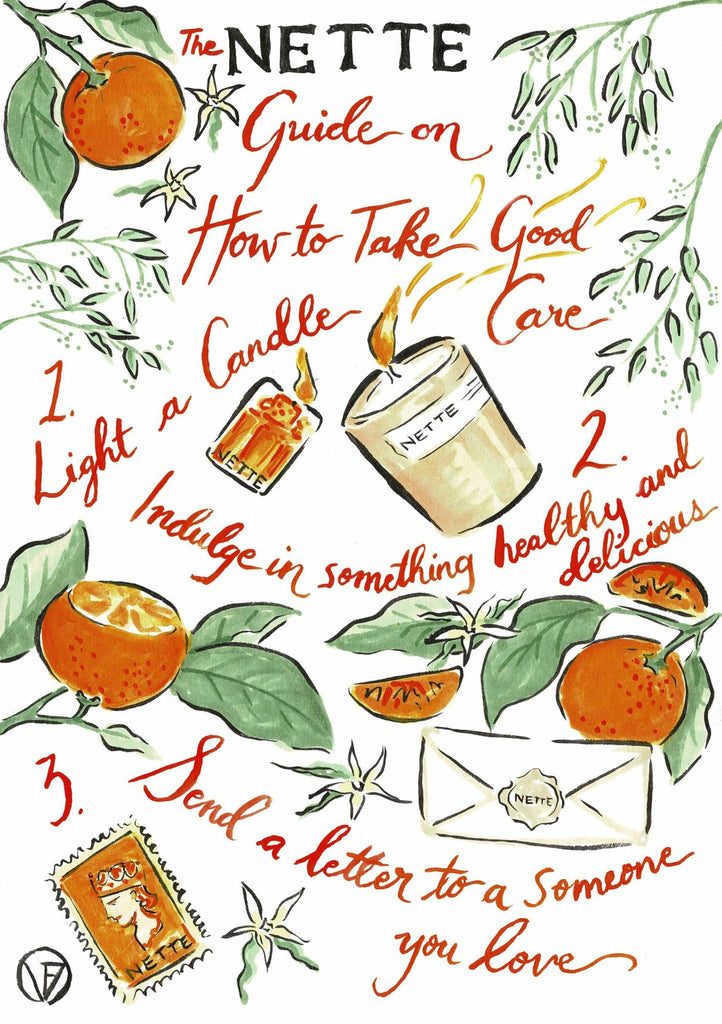 The NETTE
Guide on
How to Take Good
Care
1.
Light a Candle
NETTE
NETTE
2.
Indulge in something healthy and
delicious
3.
Send a letter to a someone
you love
NETTE
NETTE